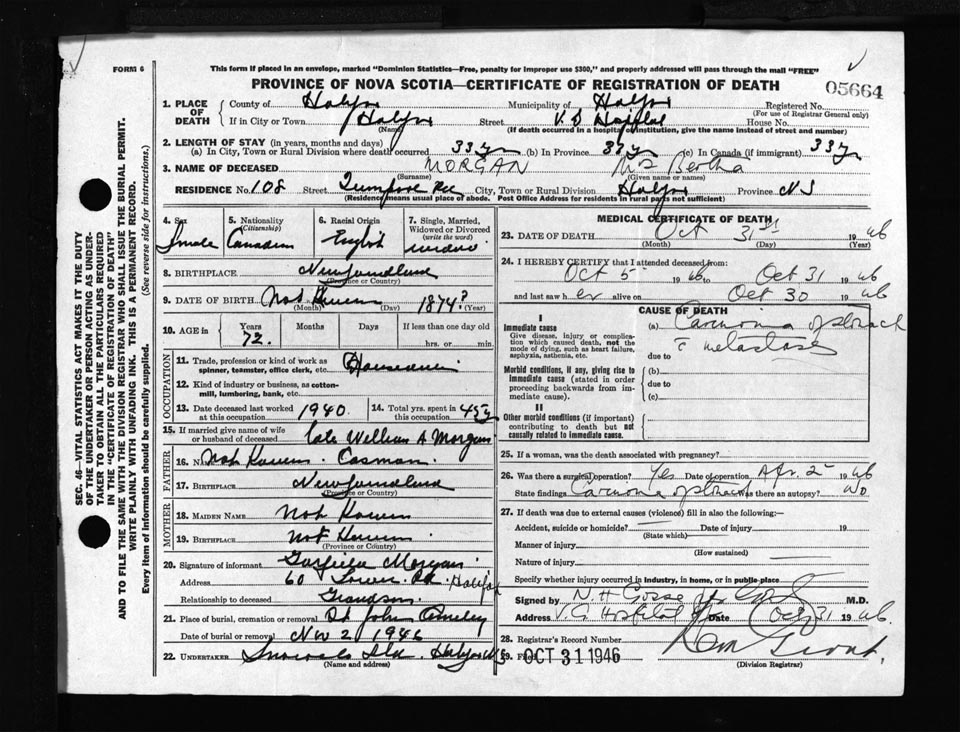 FORM 6
This form if placed in an envelope, marked "Dominion Statistics—Free, penalty for improper use $300," and properly addressed will pass through the mail "FREE"
PROVINCE OF NOVA SCOTIA—CERTIFICATE OF REGISTRATION OF DEATH
05664
SEC. 46—VITAL STATISTICS ACT MAKES IT THE DUTY
OF THE UNDERTAKER OR PERSON ACTING AS UNDER-
TAKER TO OBTAIN ALL THE PARTICULARS REQUIRED
IN THE "CERTIFICATE OF REGISTRATION OF DEATH"
AND TO FILE THE SAME WITH THE DIVISION REGISTRAR WHO SHALL ISSUE THE BURIAL PERMIT.
WRITE PLAINLY WITH UNFADING INK. THIS IS A PERMANENT RECORD.
Every item of information should be carefully supplied. (See reverse side for instructions.)
1. PLACE OF DEATH
County of Halifax Municipality of Halifax Registered No.
(For use of Registrar General only)
If in City or Town Halifax Street V.G Hospital House No.
(Name) (If death occurred in a hospital or institution, give the name instead of street and number)
2. LENGTH OF STAY (in years, months and days)
(a) In City, Town or Rural Division where death occurred 33 y (b) In Province 33 y (c) In Canada (if immigrant) 33 y
3. NAME OF DECEASED MORGAN Mrs Bertha
(Surname) (Given name or names)
RESIDENCE No. 108 Street City, Town or Rural Division Halifax Province N S
(Residence means usual place of abode. Post Office Address for residents in rural parts not sufficient)
4. Sex
Female
5. Nationality
(Citizenship)
Canadian
6. Racial Origin
English
7. Single, Married,
Widowed or Divorced
(write the word)
widow
8. BIRTHPLACE Newfoundland
(Province or Country)
9. DATE OF BIRTH Not Known 1874?
(Month) (Day) (Year)
10. AGE in
Years Months Days If less than one day old
72. hrs. or min.
OCCUPATION
11. Trade, profession or kind of work as
spinner, teamster, office clerk, etc. Housewife
12. Kind of industry or business, as cotton-
mill, lumbering, bank, etc.
13. Date deceased last worked
at this occupation 1940
14. Total yrs. spent in
this occupation 45 y
15. If married give name of wife
or husband of deceased late William A Morgan
FATHER
16. NAME Not Known Casman
17. BIRTHPLACE Newfoundland
(Province or Country)
MOTHER
18. MAIDEN NAME Not Known
19. BIRTHPLACE Not Known
(Province or Country)
20. Signature of informant Garfield Morgan
Address 60 Rd. Halifax
Relationship to deceased Grandson
21. Place of burial, cremation or removal St John Cemetery
Date of burial or removal Nov 2 1946
22. UNDERTAKER Snows Ltd. Halifax N S
(Name and address)
MEDICAL CERTIFICATE OF DEATH
23. DATE OF DEATH Oct 31st 1946
(Month) (Day) (Year)
24. I HEREBY CERTIFY that I attended deceased from:
Oct 5 1946 to Oct 31 1946
and last saw h er alive on Oct 30 1946
CAUSE OF DEATH
I
Immediate cause
Give disease, injury or complica-
tion which caused death, not the
mode of dying, such as heart failure,
asphyxia, asthenia, etc.
(a) Carcinoma of stomach
c metastases
due to
Morbid conditions, if any, giving rise to
immediate cause (stated in order
proceeding backwards from im-
mediate cause).
(b)
due to
(c)
II
Other morbid conditions (if important)
contributing to death but not
causally related to immediate cause.
25. If a woman, was the death associated with pregnancy?
26. Was there a surgical operation? Yes Date of operation Apr. 2 1946
State findings Carcinoma of stomach Was there an autopsy? No
27. If death was due to external causes (violence) fill in also the following:—
Accident, suicide or homicide? Date of injury 19
(State which)
Manner of injury
(How sustained)
Nature of injury
Specify whether injury occurred in industry, in home, or in public place
Signed by N. H Gosse M.D.
Address V. G Hospital Date Oct 31 1946
28. Registrar's Record Number
29. Filed OCT 31 1946
(Division Registrar)